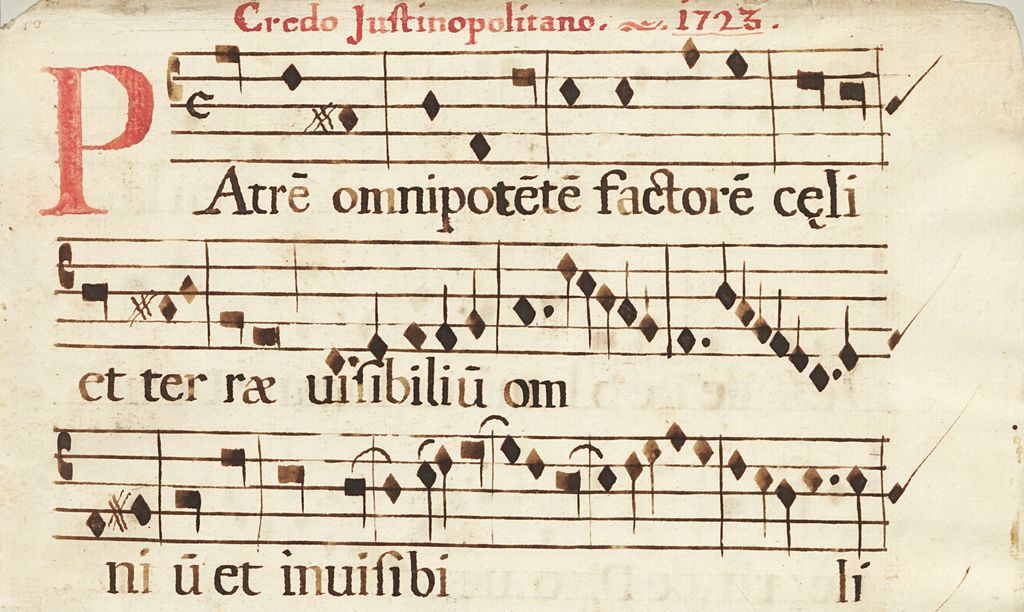 Credo Juſtinopolitano. ~. 1723.
PAtrē omnipotētē factorē cęli
et ter ræ uiſibiliū om
ni ū et inuiſibi li